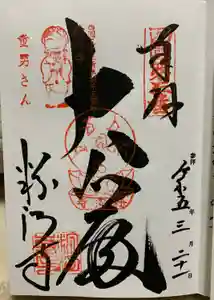 奉拝
令和五年三月二十一日
大悲殿
童男さん
粉河寺